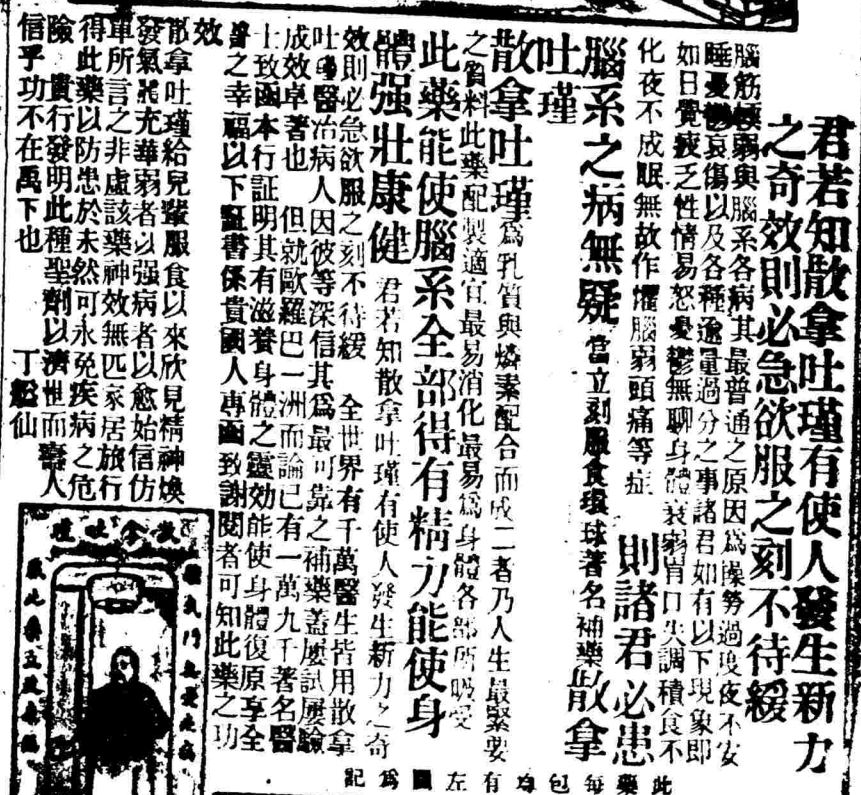 君若知散拿吐瑾有使人發生新力
之奇效則必急欲服之刻不待緩
腦筋輭弱與腦系各病其最普通之原因爲操勞過度夜不安
睡憂鬱哀傷以及各種逾量過分之事諸君如有以下現象即
如日覺疲乏性情易怒憂鬱無聊身體衰弱胃口失調積食不
化夜不成眠無故作懼腦弱頭痛等症
則諸君必患
腦系之病無疑
當立刻服食環球著名補藥
散拿
吐瑾
散拿吐瑾
爲乳質與燐素配合而成二者乃人生最緊要
之質料此藥配製適宜最易消化最易爲身體各部所吸受
此藥能使腦系全部得有精力能使身
體强壯康健
君若知散拿吐瑾有使人發生新力之奇
效則必急欲服之刻不待緩 全世界有千萬醫生皆用散拿
吐瑾醫治病人因彼等深信其爲最可靠之補藥蓋屢試屢驗
成效卓著也 但就歐羅巴一洲而論已有一萬九千著名醫
士致函本行証明其有滋養身體之靈效能使身體復原享全
之幸福以下証書係貴國人專函致謝閱者可知此藥之功
效
散拿吐瑾給兒輩服食以來欣見精神煥
發氣體充華弱者以强病者以愈始信仿
單所言之非虛該藥神效無匹家居旅行
得此藥以防患於未然可永免疾病之危
險 貴行發明此種聖劑以濟世而壽人
信乎功不在禹下也
丁 仙
散拿吐瑾
此藥每包均有左圖爲記